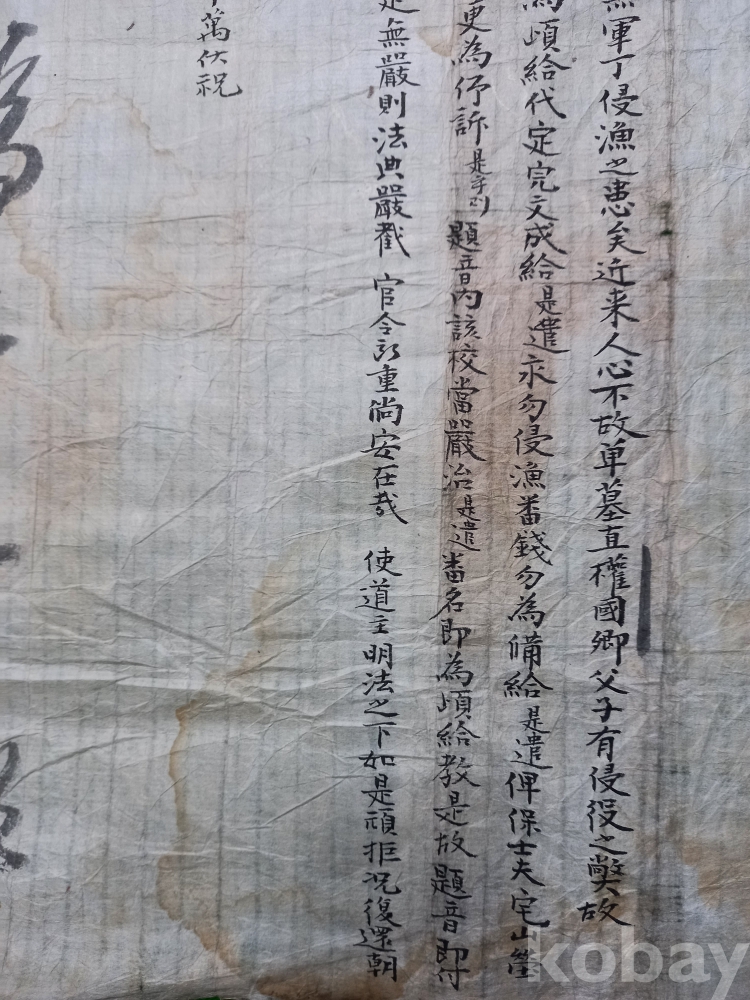 無軍丁侵漁之患矣近来人心不故單墓直權國鄉父子有侵役之獘故
為頉給代定完文成給是遣永勿侵漁番錢勿為備給是遣俾保士夫宅山塋
更為仰訴是乎則題音內該校當嚴治是遣番名即為頉給教是故題音即付
是無嚴則法典嚴截官令所重尚安在哉使道主明法之下如是頑拒况復還朝
萬伏祝
kobay